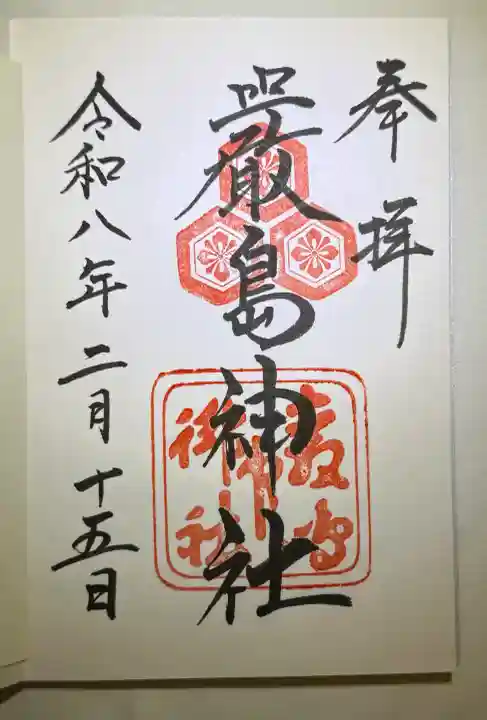 奉拝
嚴島神社
令和八年二月十五日